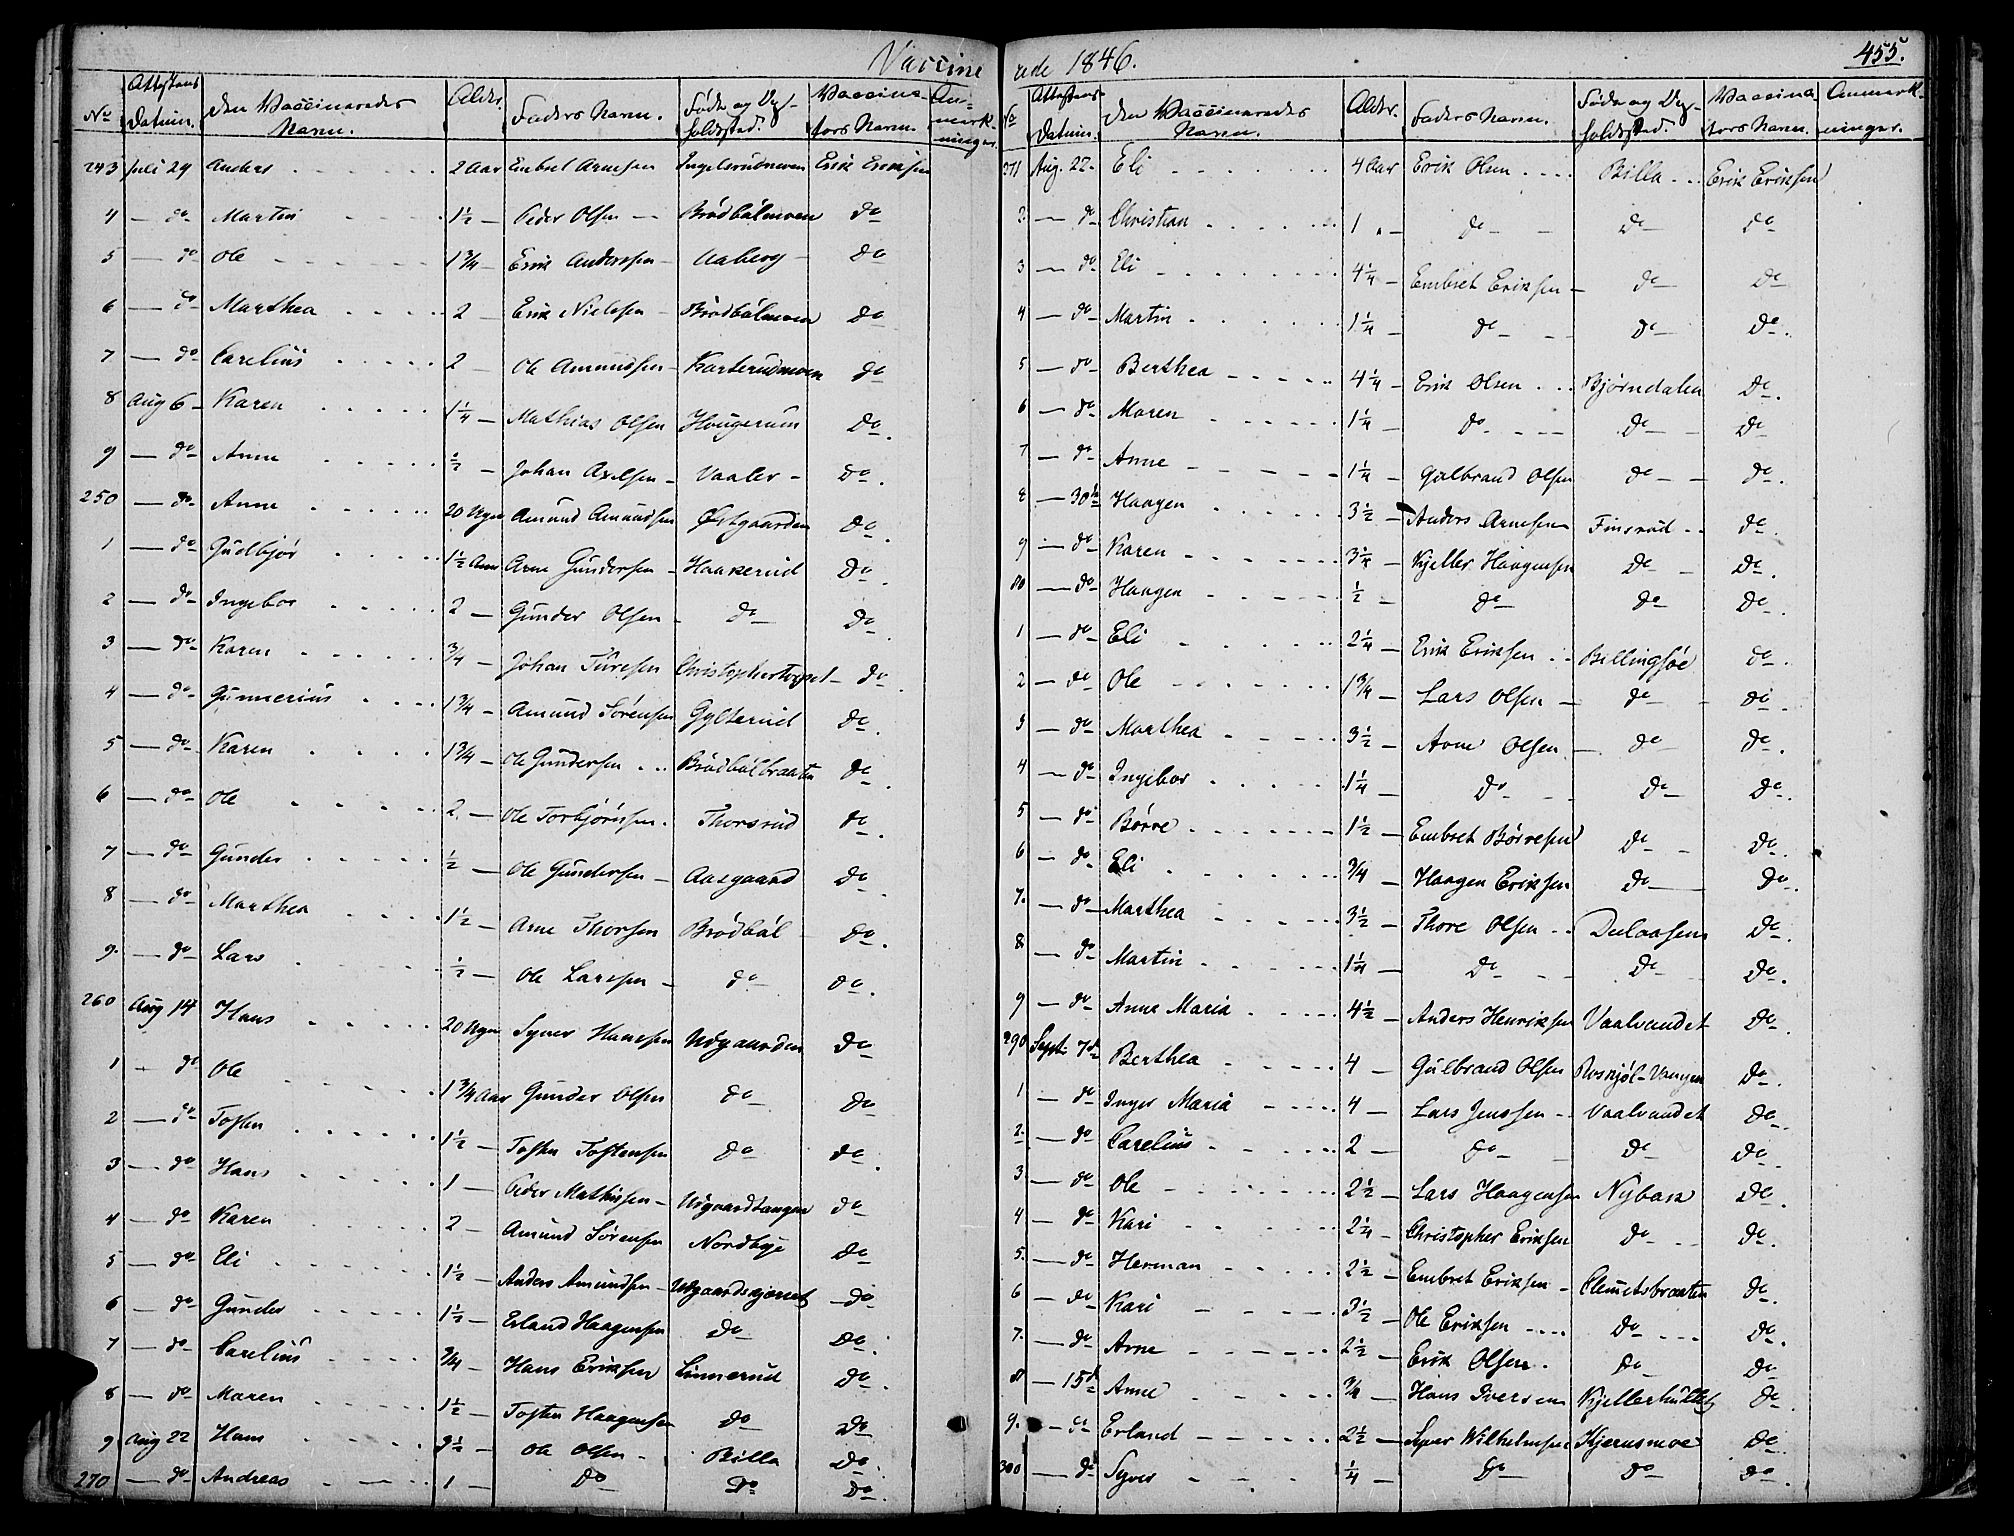 Vaccine
No Attestens Datum. Den Vaccineredes Navn. Alder. Faders Navn. Føde og Op-holdssted. Vaccina-tors Navn. An-mærk-ninger.
243 Juli 29 Anders 2 Aar Embret Arnesen Ingelsrudmoen Erik Eriksen
4 — do Martin 1½ — Peder Olsen — Brødbølmoen do
5 — do Ole 1¾ — Erik Andersen — Aaberg — do
6 — do Marthea 2 — Erik Nielsen — Brødbølmoen do
7 — do Carelius 2 — Ole Amundsen — Karterudmoen do
8 Aug 6 — Karen 1¼ — Mathias Olsen Hougerum do
9 — do Anne ½ — Johan Axelsen — Vaaler — do
250 — do Anne 20 Uger Amund Amundsen Østgaarden do
1 — do Gudbjør 1½ Aar Arne Gundersen — Haakerud do
2 — do Ingebor 2 — Gunder Olsen — do do
3 — do Karen ¾ — Johan Turesen Christophertorpet — do
4 — do Gunnerius 1¾ — Amund Sørensen Gylterud do
5 — do Karen 1¾ — Ole Gundersen Brødbølbraaten do
6 — do Ole 2 — Ole Torbjørnsen Thorsrud do
7 — do Gunder ½ — Ole Gundersen — Aasgaard do
8 — do Marthea 1½ — Arne Thorsen Brødbøl do
9 — do Lars ½ — Ole Larssen — do do
260 Aug 14 Hans 20 Uger Syver Hanssen Udgaarden do
1 — do Ole 1¾ Aar Gunder Olsen do do
2 — do Tosten 1½ — Tosten Tostensen do do
3 — do Hans 1 — Peder Mathisen — Udgaardtangen do
4 — do Karen 2 — Amund Sørensen Nordbye do
5 — do Eli 1½ — Anders Amundsen — Udgaardskjernet do
6 — do Gunder 1½ — Erland Haagensen do do
7 — do Carelius ¾ — Hans Eriksen Linnerud do
8 — do Maren 1½ — Tosten Haagensen do do
9 Aug 22 Hans 3½ — Ole Olsen — Billa do
270 — do Andreas 1 — do do do
rede 1846. 455.
No Attestens Datum. Den Vaccineredes Navn. Alder. Faders Navn. Føde og Op-holdssted. Vaccina-tors Navn. Anmærk-ninger.
271 Aug. 22 Eli 4 Aar Erik Olsen Billa Erik Eriksen
2 — do Christian 1 — do do do
3 — do Eli 4¼ — Embret Eriksen — do do
4 — do Martin 1¼ — do do do
5 — do Berthea 4¼ — Erik Olsen Bjørndalen do
6 — do Maren 1¼ — do do do
7 — do Anne 1¼ — Gulbrand Olsen do do
8 — 30te Haagen 3½ — Anders Arnesen Finsrud do
9 — do Karen 3¼ — Kjeller Haagensen do do
80 — do Haagen ½ — do do do
1 — do Eli 2¼ — Erik Eriksen Bellingsøe do
2 — do Ole 1¾ — Lars Olsen — do do
3 — do Marthea 3½ — Arne Olsen — do do
4 — do Ingebor 1¼ — do do do
5 — do Børre 1½ — Embret Børresen do do
6 — do Eli ¾ — Haagen Eriksen do do
7 — do Marthea 3½ — Thore Olsen Delaasen do
8 — do Martin 1¼ — do do do
9 — do Anne Maria 4½ — Anders Henriksen Vaalvandet do
290 Sept. 7de Berthea 4 — Gulbrand Olsen Roskjøl-Vangen do
1 — do Inger Maria 4 — Lars Jenssen Vaalvandet do
2 — do Carelius 2 — do do do
3 — do Ole 2½ — Lars Haagensen Nybak do
4 — do Kari 2¼ — Christopher Eriksen do do
5 — do Herman 2½ — Embret Eriksen — Clemetsbraaten do
6 — do Kari 3½ — Ole Eriksen do do
7 — do Arne 2½ — Erik Olsen do do
8 — 15de Anne ¾ — Hans Iversen Kjellerhuttet do
9 — do Erland 2½ — Syver Wilhelmsen Kjernsmoe do
300 — do Syver ¼ — do do do